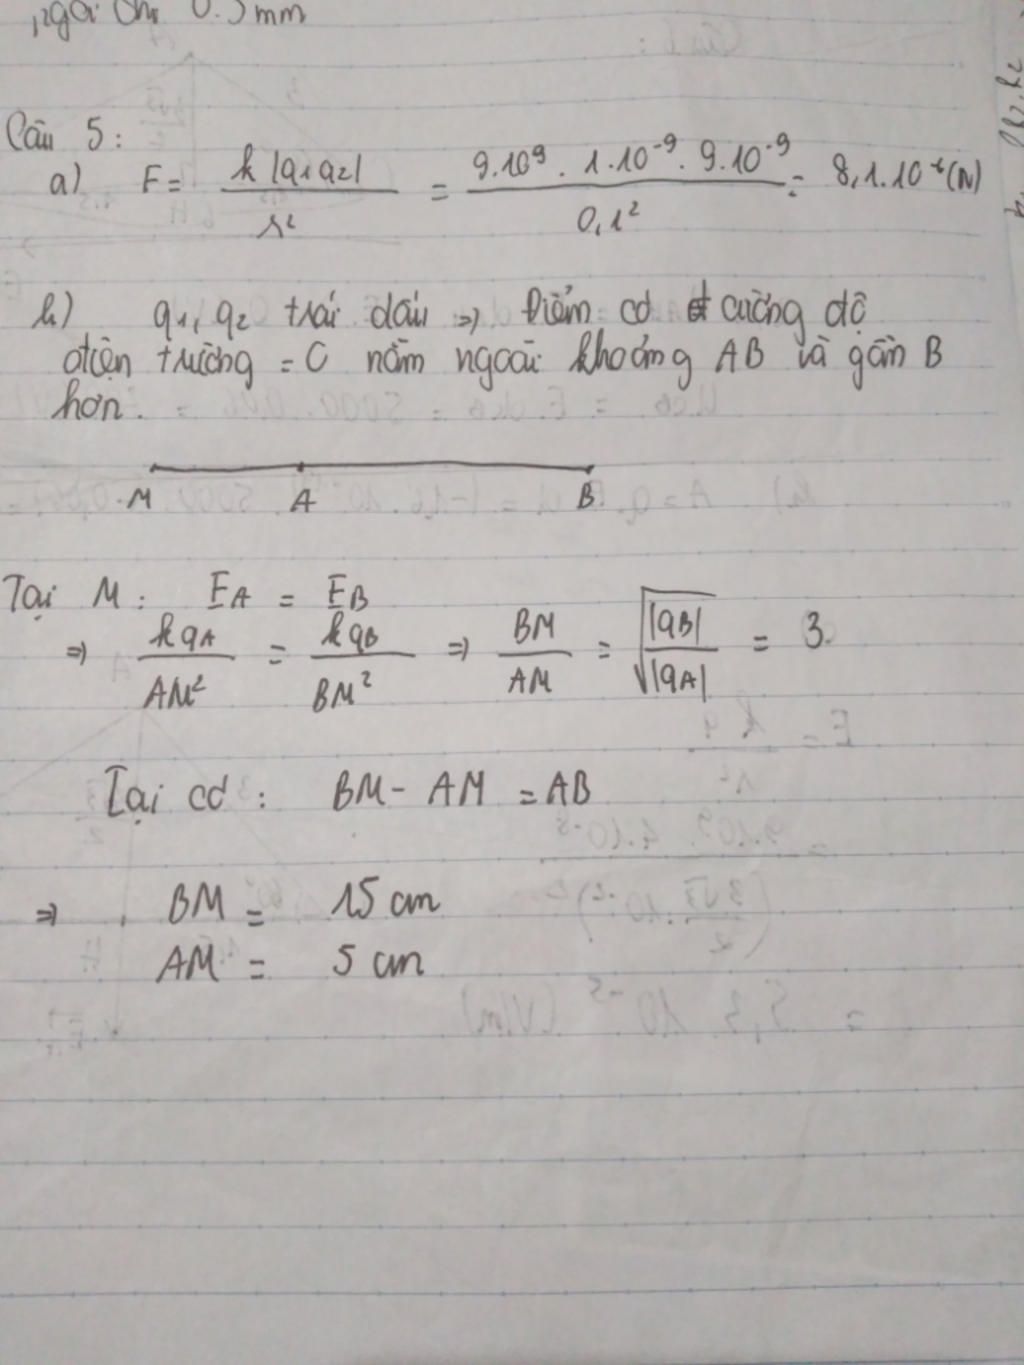 0.5 mm
Câu 5:
a) F = k|q1q2| / r² = 9.10⁹ . 1.10⁻⁹ . 9.10⁻⁹ / 0,1² = 8,1.10⁻⁶ (N)
b) q1, q2 trái dấu => Điểm có cường độ
điện trường = 0 nằm ngoài khoảng AB và gần B
hơn.
M A B
Tại M: EA = EB
=> kqA / AM² = kqB / BM² => BM / AM = √(|qB| / |qA|) = 3.
Lại có: BM - AM = AB
=> BM = 15 cm
AM = 5 cm